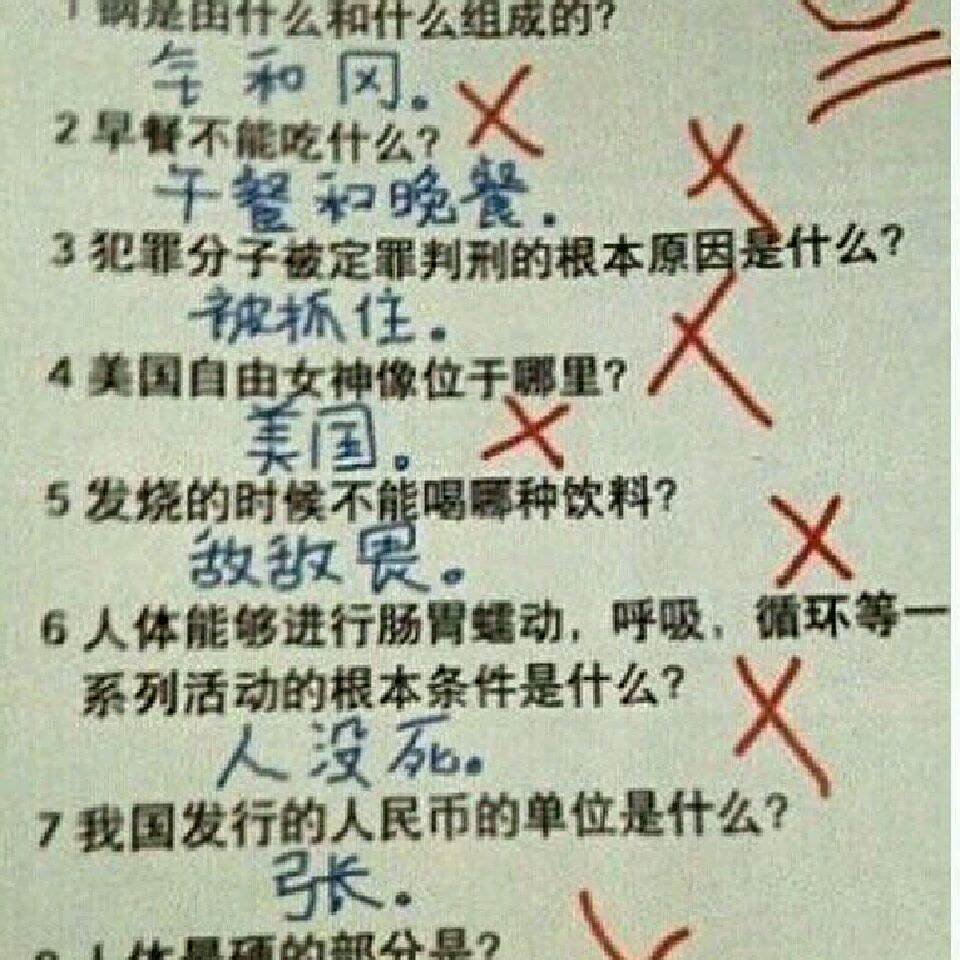 1 钢是由什么和什么组成的?
钅和冈。
2 早餐不能吃什么?
午餐和晚餐.
3 犯罪分子被定罪判刑的根本原因是什么?
被抓住.
4 美国自由女神像位于哪里?
美国。
5 发烧的时候不能喝哪种饮料?
敌敌畏。
6 人体能够进行肠胃蠕动，呼吸，循环等一
系列活动的根本条件是什么?
人没死。
7 我国发行的人民币的单位是什么?
张.
8 人体最硬的部分是?